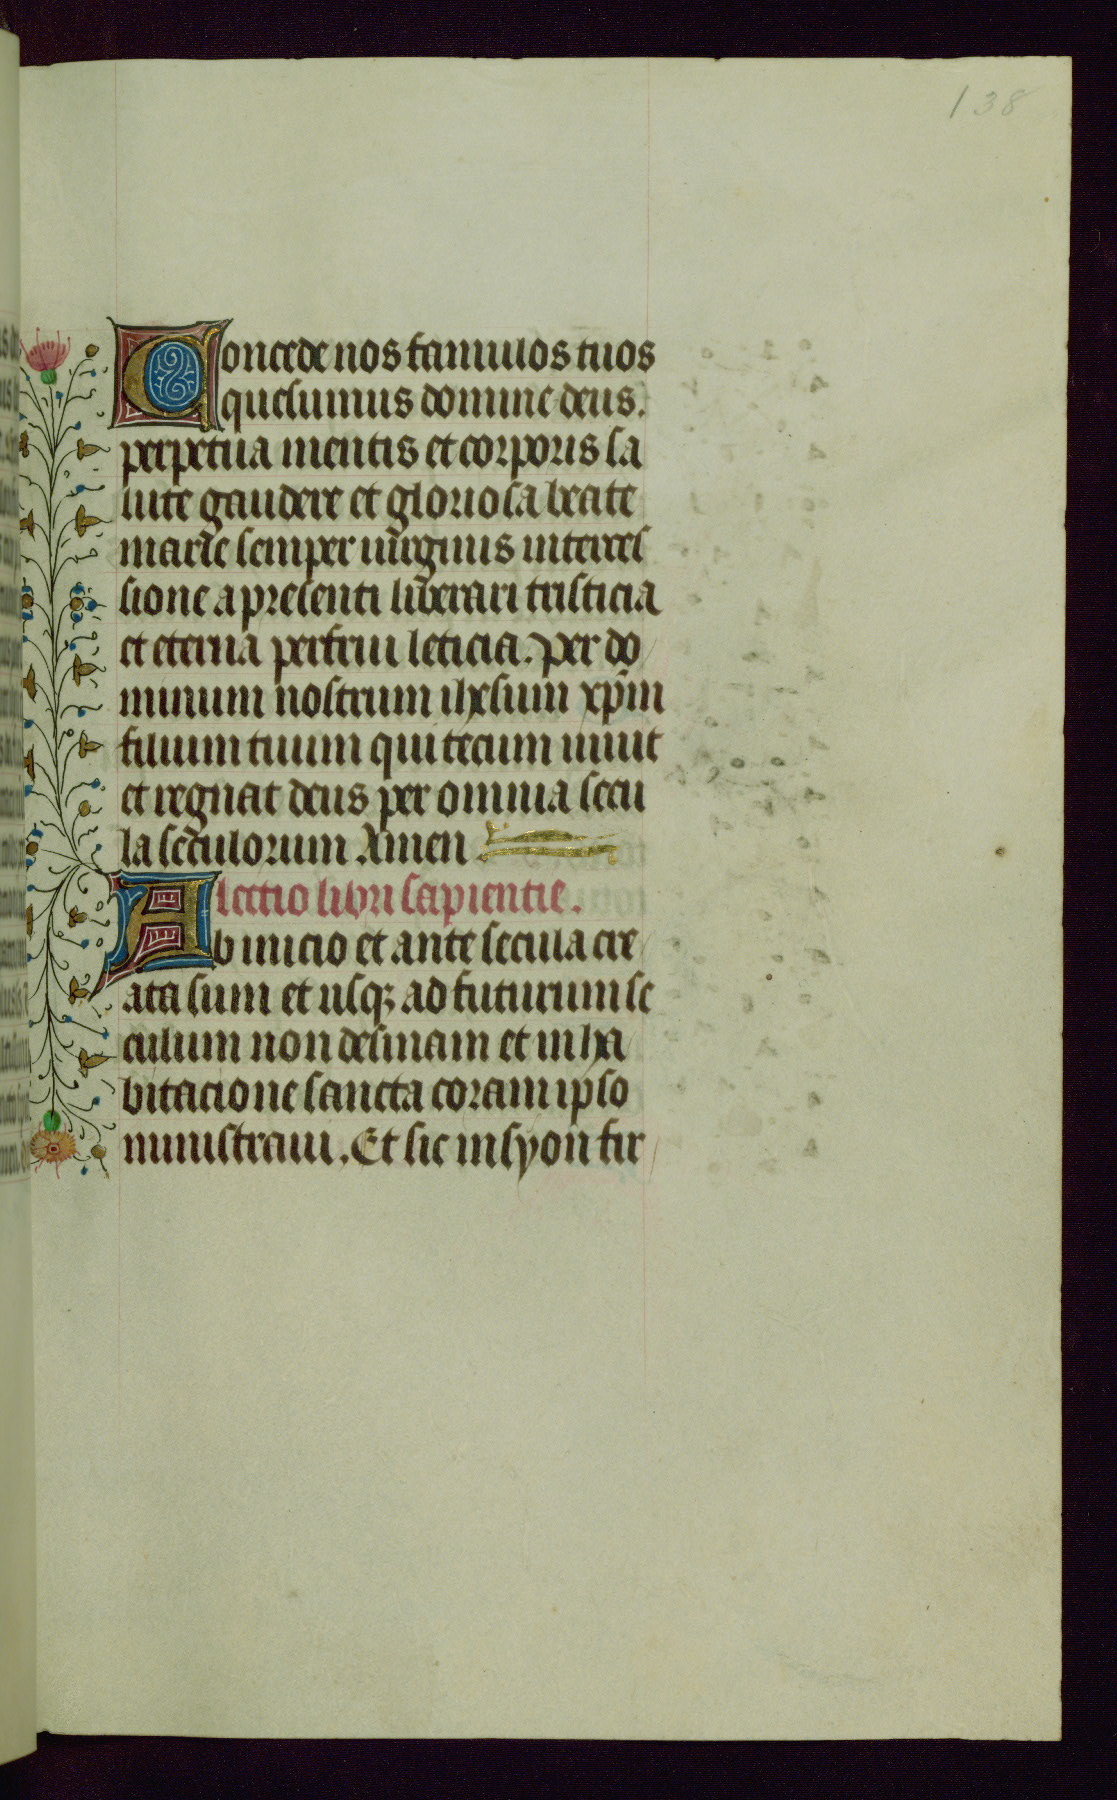 138
Concede nos famulos tuos
quesumus domine deus.
perpetua mentis et corporis sa
lute gaudere et gloriosa beate
marie semper uirginis interces
sione a presenti liberari tristicia
et eterna perfrui leticia. Per do
minum nostrum ihesum xpm
filium tuum qui tecum uiuit
et regnat deus per omnia secu
la seculorum Amen
lectio libri sapientie.
Ab inicio et ante secula cre
ata sum et usq; ad futurum se
culum non desinam et in ha
bitacione sancta coram ipso
ministraui. Et sic in syon fir